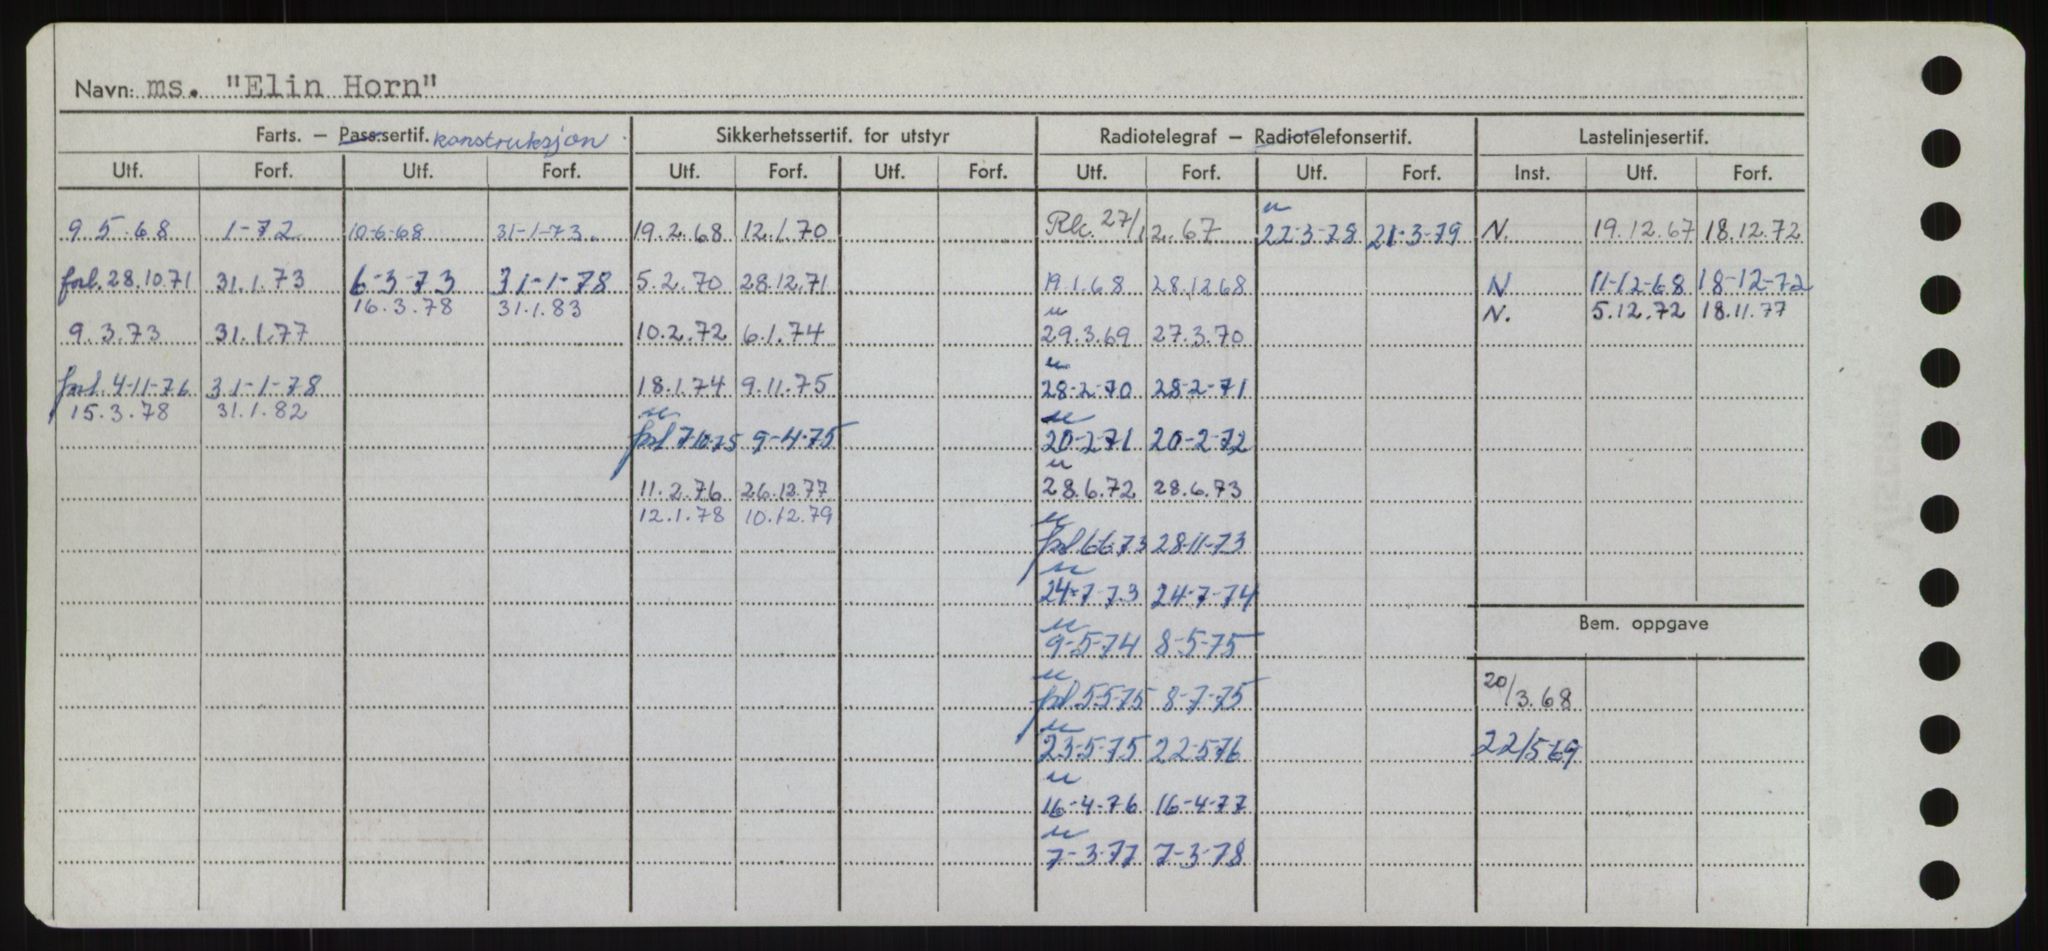 Navn: ms. "Elin Horn"
Farts. — Pass.sertif. konstruksjon Sikkerhetssertif. for utstyr Radiotelegraf — Radiotelefonsertif. Lastelinjesertif.
Utf. Forf. Utf. Forf. Utf. Forf. Utf. Forf. Utf. Forf. Utf. Forf. Inst. Utf. Forf.
9.5.68 1-72 10-6-68 31-1-73. 19.2.68 12.1.70 27/12.67 u 22-3-78 21-3-79 N. 19.12.67 18.12.72
forl. 28.10.71 31.1.73 6-3-73 31-1-78 5.2.70 28.12.71 19.1.68 28.12.68 N 11-12-68 18-12-72
16.3.78 31.1.83 N. 5.12.72 18.11.77
u
9.3.73 31.1.77 10.2.72 6.1.74 29.3.69 27.3.70
u
forl. 4-11-76 31-1-78 18.1.74 9.11.75 28-2-70 28-2-71
15.3.78 31.1.82
u u
forl 7-10-75 9-4-75 20-2-71 20-2-72
u
11.2.76 26.12.77 28.6.72 28.6.73
12.1.78 10.12.79
u
forl 6-6-73 28-11-73
u
24-7-73 24-7-74
Bem. oppgave
u
9-5-74 8-5-75
u
forl. 5-5-75 8-7-75 20/3.68
u
23-5-75 22-5-76 22/5-69
u
16-4-76 16-4-77
u
7-3-77 7-3-78